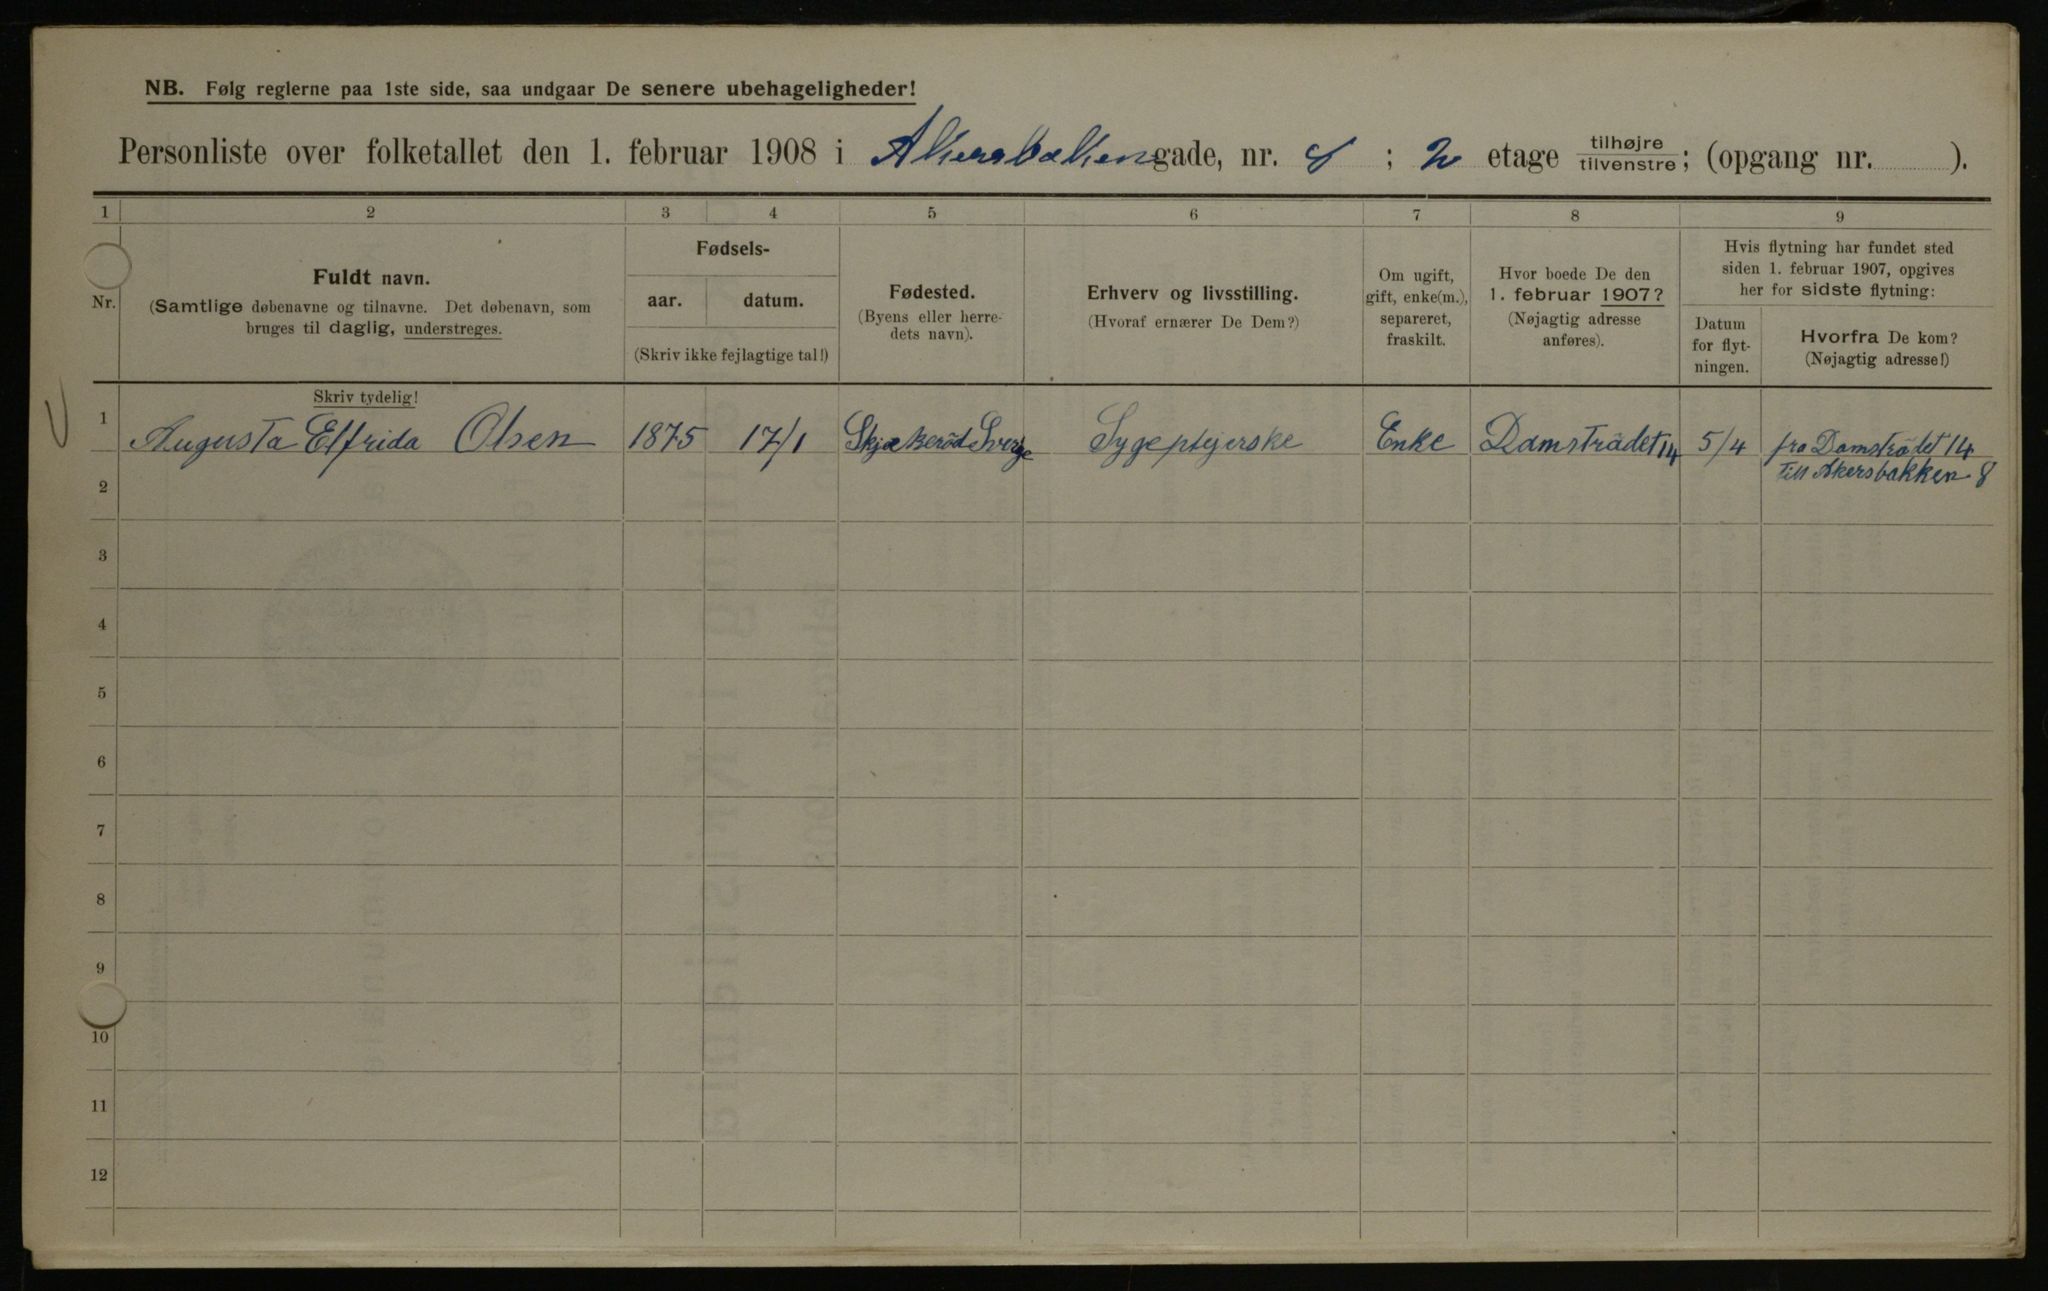 NB. Følg reglerne paa 1ste side, saa undgaar De senere ubehageligheder!
Personliste over folketallet den 1. februar 1908 i Akersbakken gade, nr. 8 ; 2 etage tilhøjre/tilvenstre; (opgang nr. ).
1 2 3 4 5 6 7 8 9
Nr.
Fuldt navn.
(Samtlige døbenavne og tilnavne. Det døbenavn, som
bruges til daglig, understreges.
Fødsels-
aar. datum.
(Skriv ikke fejlagtige tal!)
Fødested.
(Byens eller herre-
dets navn).
Erhverv og livsstilling.
(Hvoraf ernærer De Dem?)
Om ugift,
gift, enke(m.),
separeret,
fraskilt.
Hvor boede De den
1. februar 1907?
(Nøjagtig adresse
anføres).
Hvis flytning har fundet sted
siden 1. februar 1907, opgives
her for sidste flytning:
Datum
for flyt-
ningen.
Hvorfra De kom?
(Nøjagtig adresse!)
Skriv tydelig!
1 Augusta Elfrida Olsen 1875 17/1 Skjækerød Sverge Sygeplejerske Enke Damsträdet 14 5/4 fra Damsträdet 14
till Akersbakken 8
2
3
4
5
6
7
8
9
10
11
12